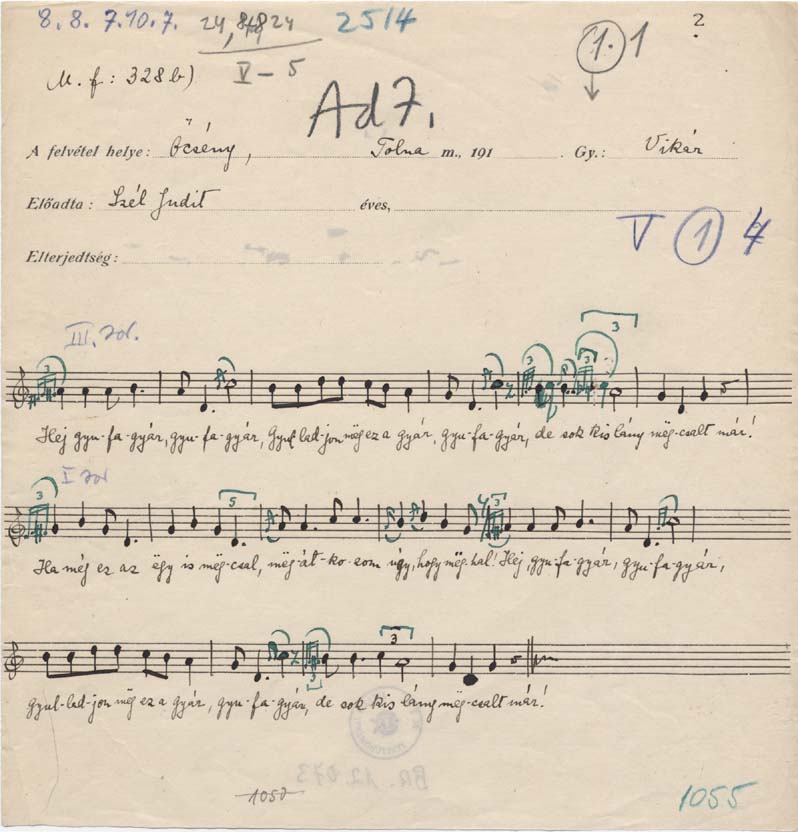 8. 8. 7. 10. 7. 2514 2
V – 5 1. 1
M. f.: 328 b)
Ad 7.
A felvétel helye: Őcsény, Tolna m., 191 . Gy.: Vikár
Előadta: Szél Judit éves,
V 1 4
Elterjedtség:
III. 
3 3 3 3
Hej gyu-fa-gyár, gyu-fa-gyár, Gyul-lad-jon még ez a gyár, gyu-fa-gyár, de sok kis lány még-csalt már!
I
3 5 3
Ha még ez az ëgy is mëg-csal, mëg-át-ko-zom úgy, hogy mëg-hal! Hej, gyu-fa-gyár, gyu-fa-gyár,
3 3
gyul-lad-jon még ez a gyár, gyu-fa-gyár, de sok kis lány mëg-csalt már!
BR. 12 073
1050 1055